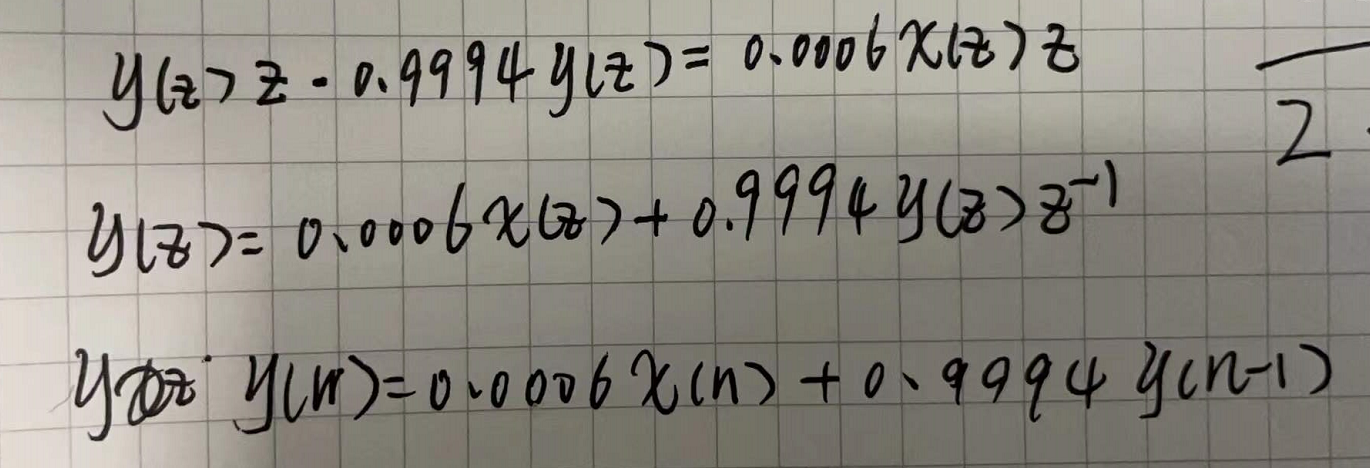 y(z)z - 0.9994y(z) = 0.0006x(z)z
y(z) = 0.0006x(z) + 0.9994y(z)z⁻¹
y(n) = 0.0006x(n) + 0.9994y(n-1)
2